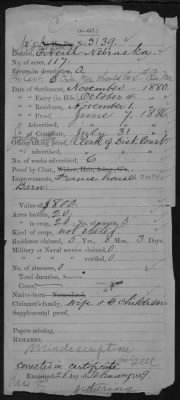 (4-427.)
No. 3139
O'Neill Nebraska
Acres of 117.
Errors in description, a
Date of Settlement, November 1880.
" Entry (in Hd) October 4
" Residence, November 1.
" Proof, June 7, 1886
" Advertised,
" of Certificate, July 31
Officer taking proof, Clerk of Dist. Court
" Advertised,
No. of weeks advertised, 6
Proof by Clmt.,
Improvements, Frame house
Barn.
Value, $800.
Acres broken, 20.
" in crop, 20. seasons, 5
Kind of crops, not stated
Residence claimed, 5 Yrs., 6 Mos., 3 Days.
Military or Naval service claimed, 0
" " " verified, 0
No. of absences, 0
Total duration—
Cause—
Native-born—Naturalized,
Claimant's family, Wife & 6 children
Supplemental proof,
Papers missing,
REMARKS.
Misdescription
corrected in certificate
Examined 28 day of February 9.